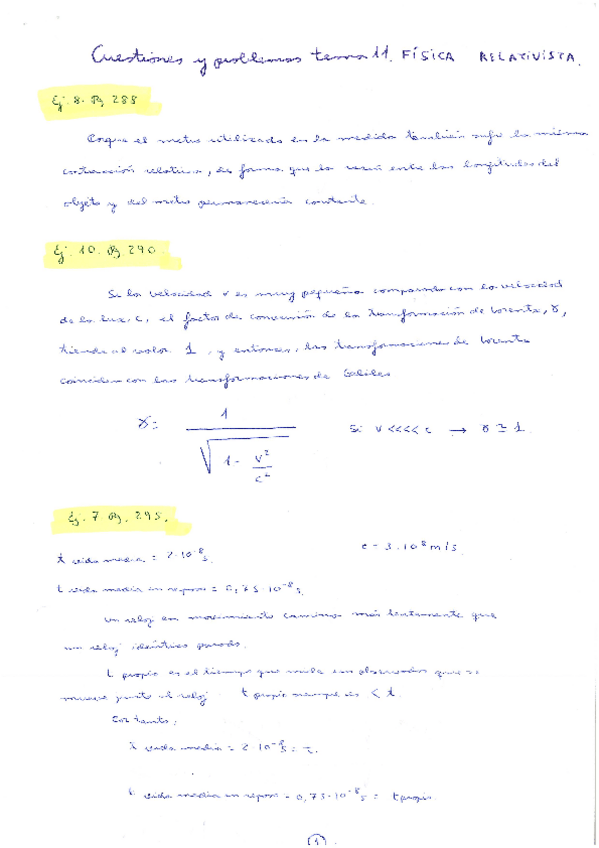 Cuestiones y problemas tema 11. FÍSICA RELATIVISTA.
Ej. 8. Pg 288
Porque el metro utilizado en la medida también sufre la misma
contracción relativa, de forma que la razón entre las longitudes del
objeto y del metro permanecería constante.
Ej. 10. Pg 290.
Si la velocidad v es muy pequeña comparada con la velocidad
de la luz, c, el factor de conversión de la transformación de Lorentz, γ,
tiende al valor 1, y entonces, las transformaciones de Lorentz
coinciden con las transformaciones de Galileo
γ = 1 / √(1 - v²/c²) Si v <<<< c → γ ≃ 1
Ej. 7 Pg. 295.
t vida media = 2·10⁻⁸ s. c = 3·10⁸ m/s.
t vida media en reposo = 0,75·10⁻⁸ s.
Un reloj en movimiento camina más lentamente que
un reloj idéntico parado.
t propio es el tiempo que mide un observador que se
mueve junto al reloj t propio siempre es < t.
Por tanto;
t vida media = 2·10⁻⁸ s = t.
t vida media en reposo = 0,75·10⁻⁸ s = t propio.
1